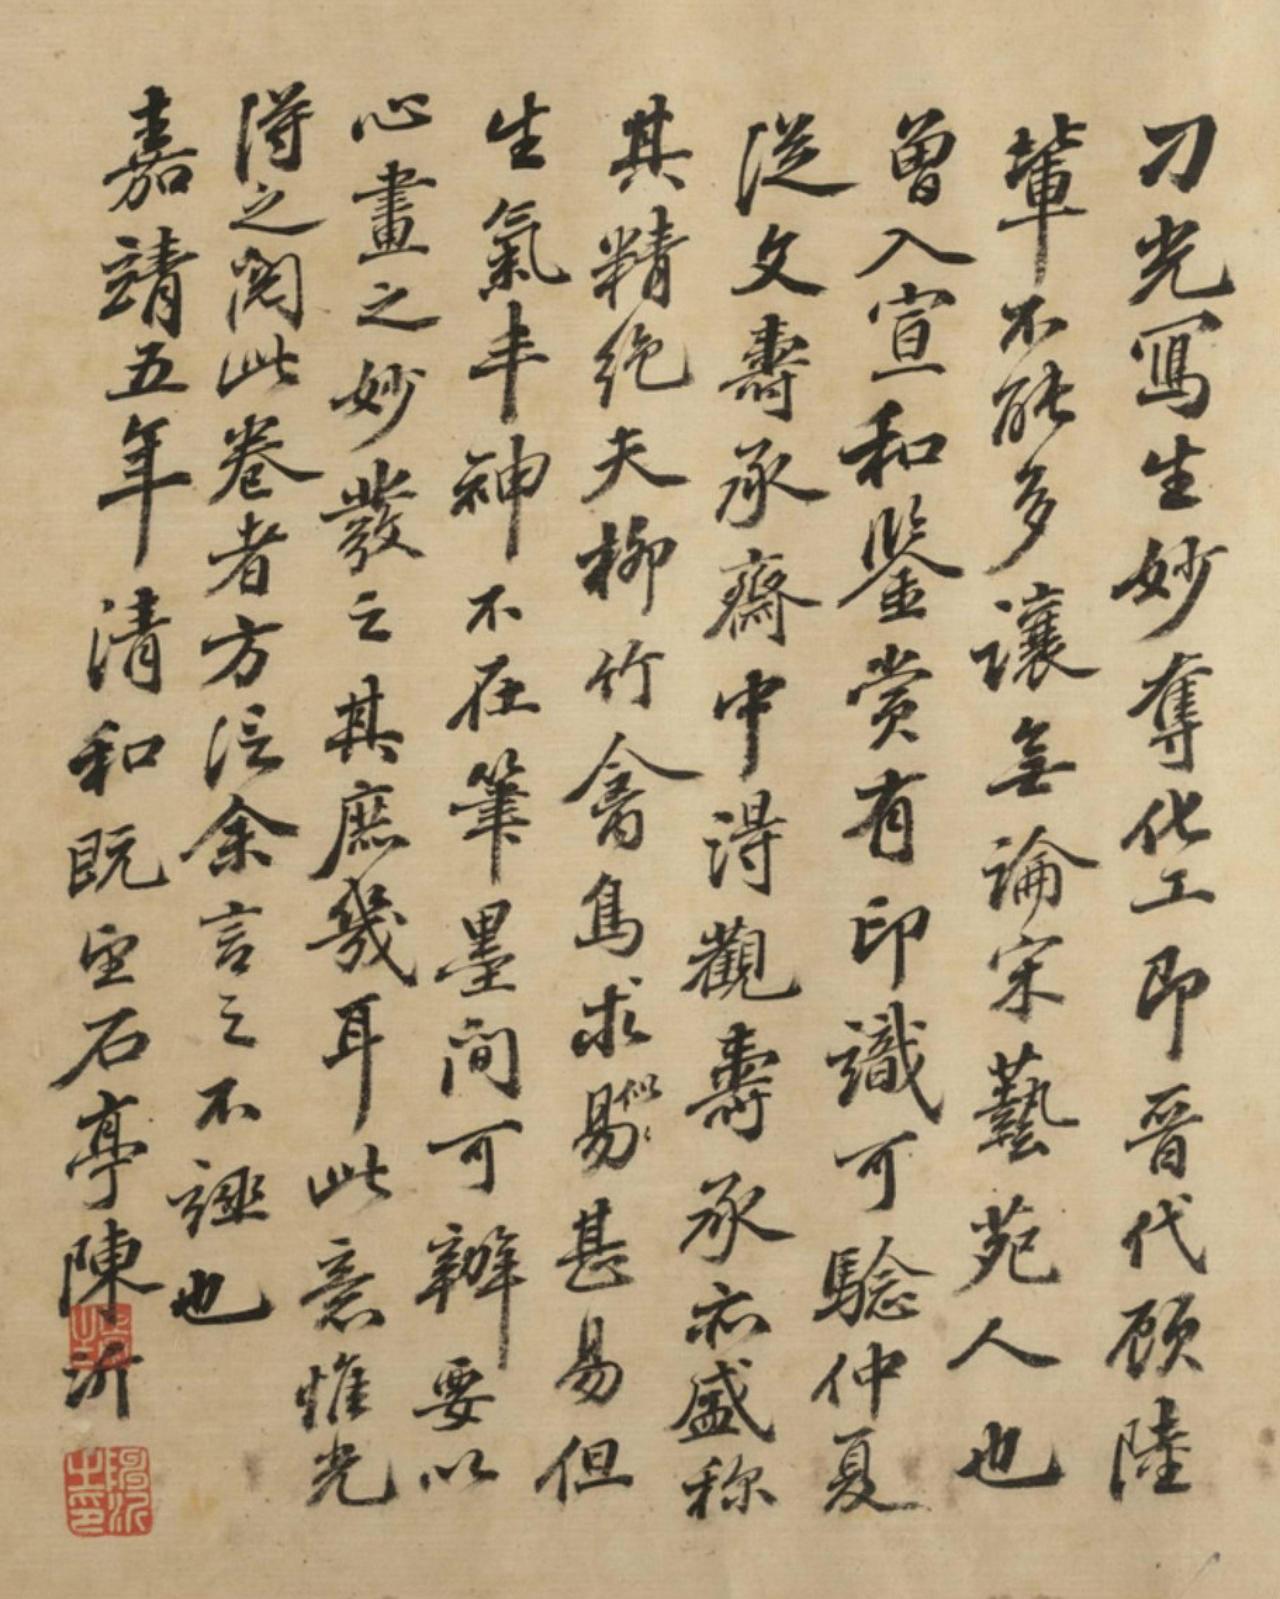 刁光寫生妙奪化工即晉代顾陸
輩不能多讓無論宋藝苑人也
曽入宣和鑒赏有印識可驗仲夏
從文壽承齋中得觀壽承亦盛称
其精绝夫柳竹禽鳥求似易甚易但
生氣丰神不在筆墨间可辦要以
心畫之妙發之其庶幾耳此意惟光
得之阅此卷者方信余言之不誣也
嘉靖五年清和既望石亭陳沂